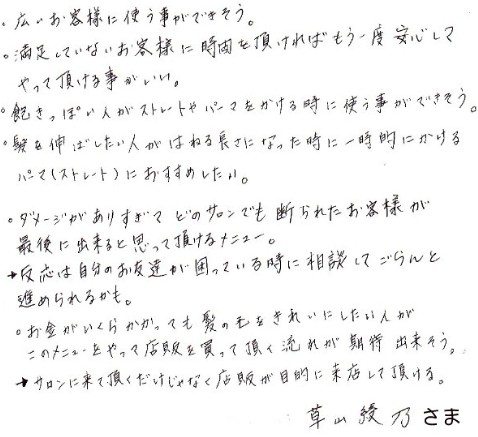 ・広いお客様に使う事ができそう。
○満足していないお客様に時間を頂ければもう一度安心して
やって頂ける事がいい。
○飽きっぽい人がストレートやパーマをかける時に使う事ができそう。
○髪を伸ばしたい人がはねる長さになった時に一時的にかける
パーマ(ストレート)におすすめしたい。
○ダメージがありすぎてどのサロンでも断られたお客様が
最後に出来ると思って頂けるメニュー。
→反応は自分のお友達が困っている時に相談してごらんと
進められるかも。
○お金がいくらかかっても髪の毛をきれいにしたい人が
このメニューをやって店販を買って頂く流れが期待出来そう。
→サロンに来て頂くだけじゃなく店販が目的に来店して頂ける。
草山綾乃さま